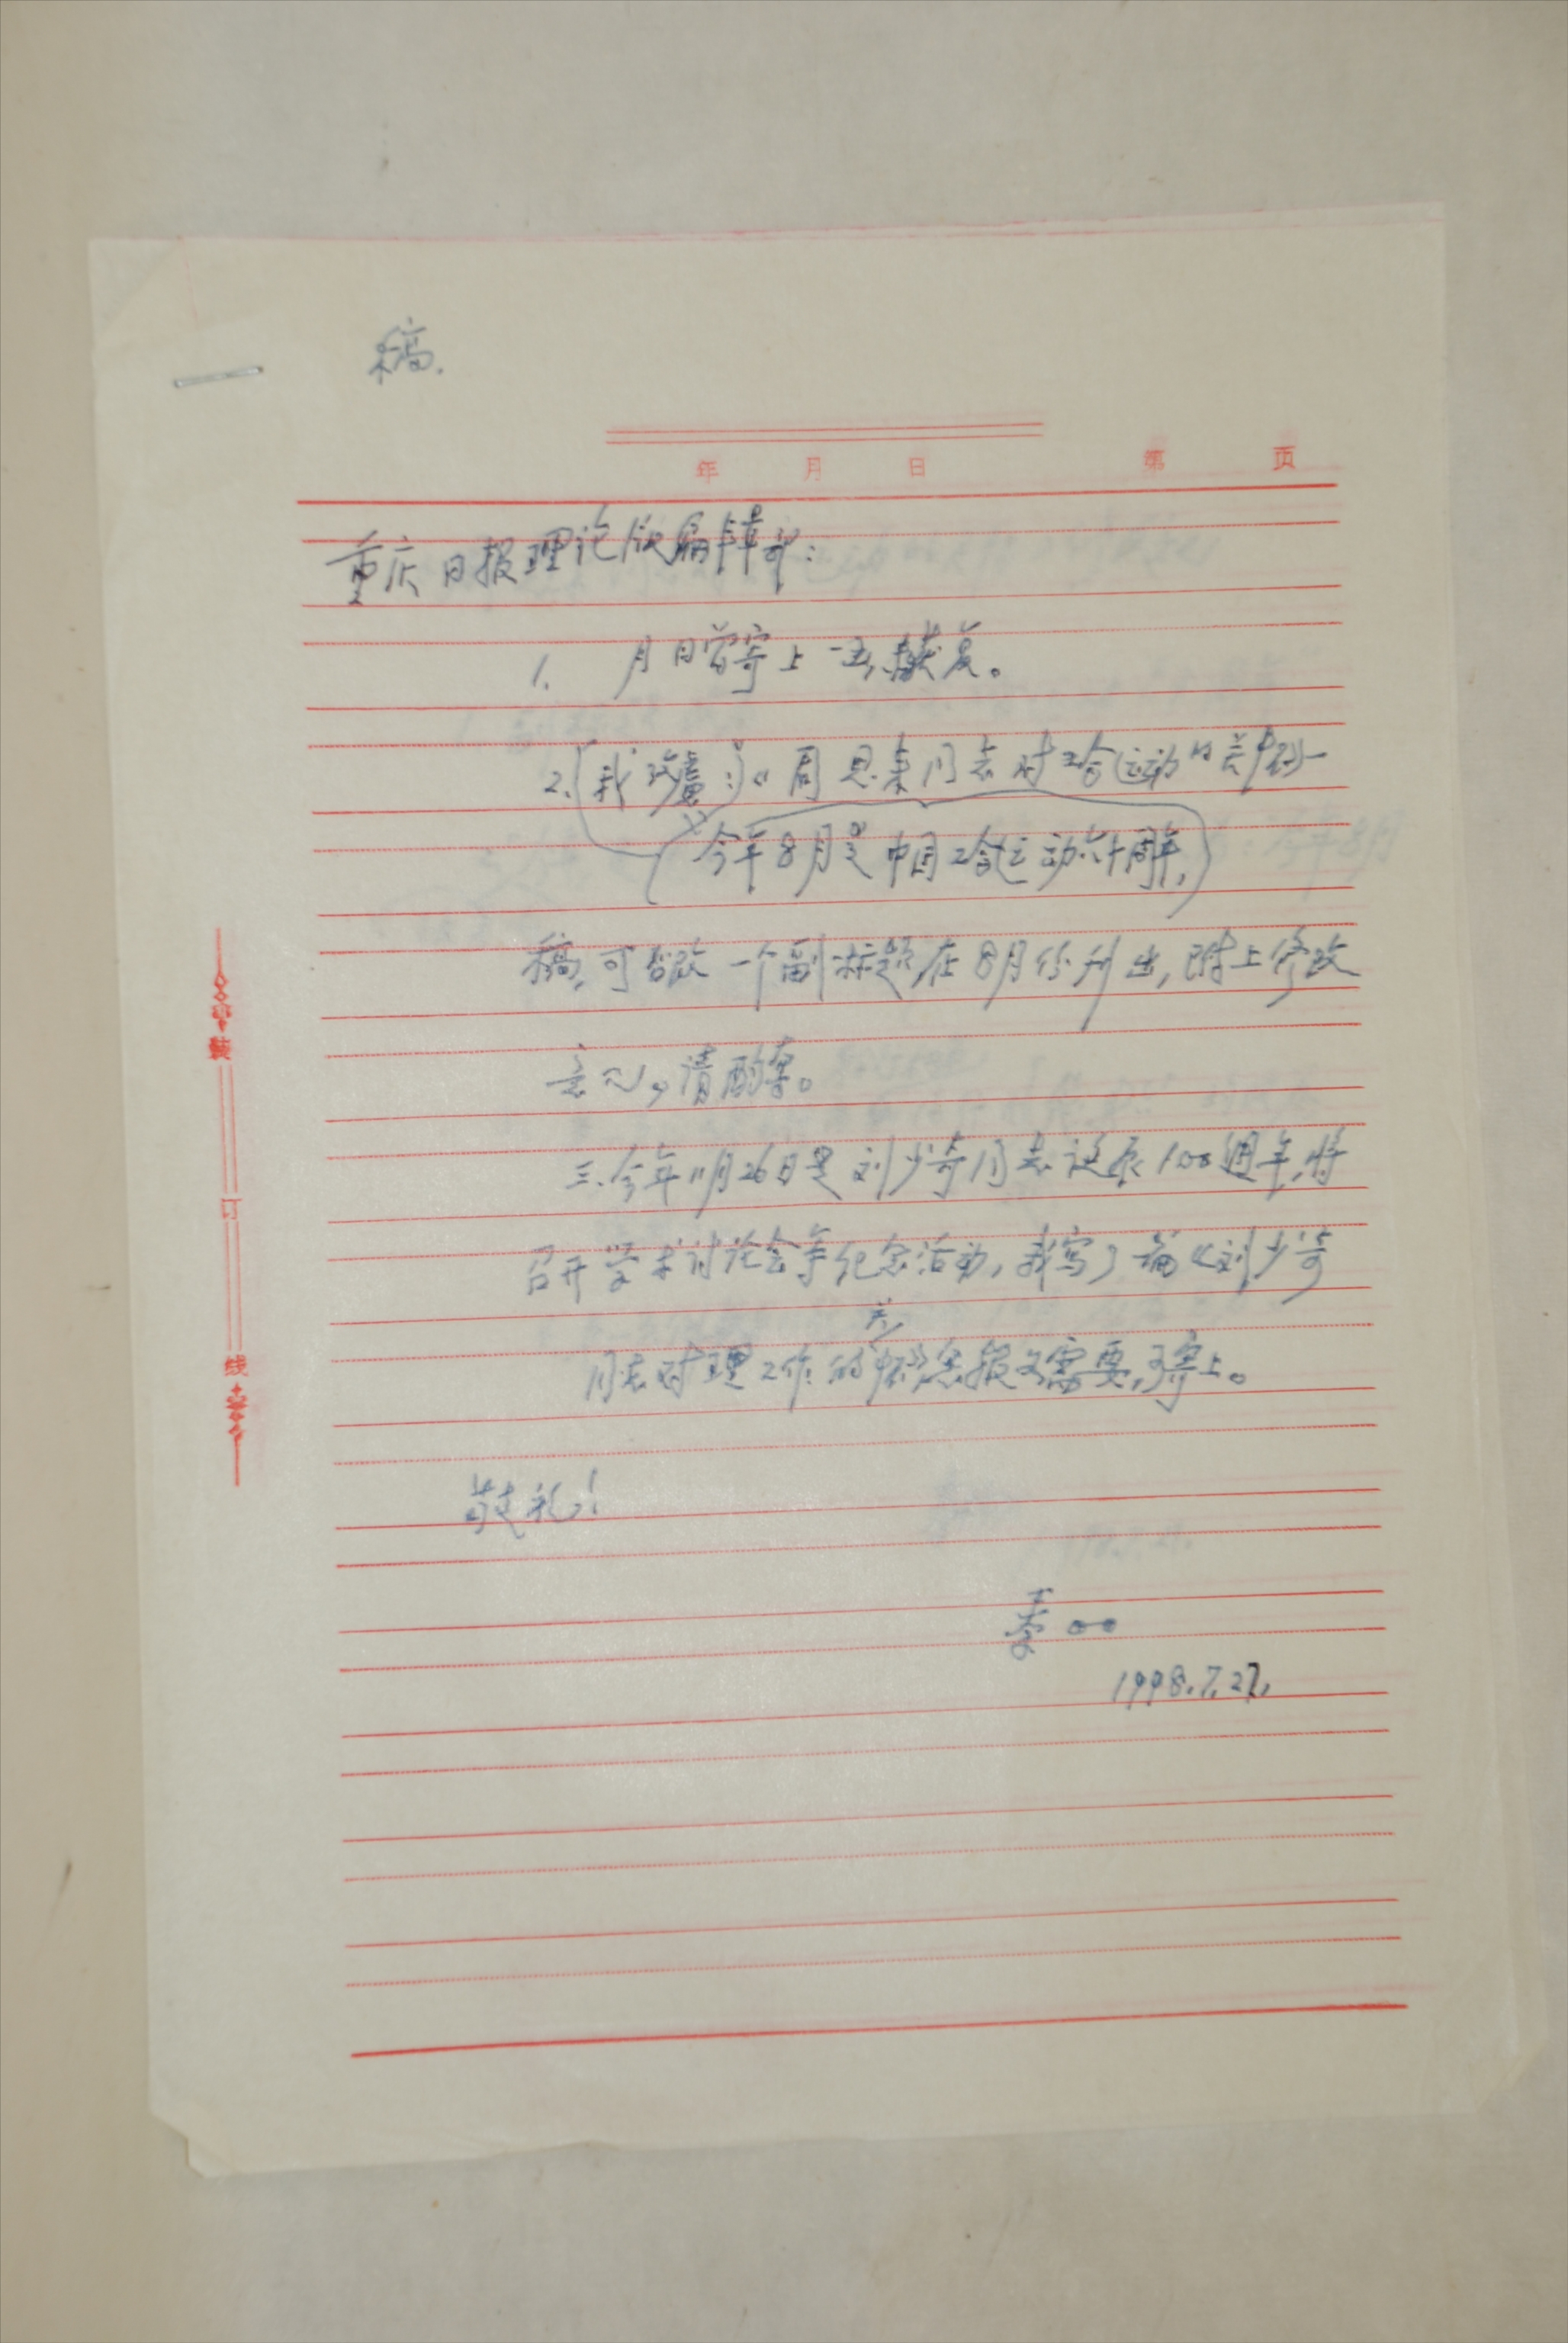 稿.
年 月 日 第 页
重庆日报理论版编辑部:
1. 月 日曾寄上一函,未获复。
2.(我改意:)《周恩来同志对工合运动的关怀》一
(今年8月是中国工合运动六十周年,)
稿,可否改一个副标题在8月份刊出,附上修改
意见,请酌案。
三.今年11月26日是刘少奇同志诞辰100週年,将
召开学术讨论会等纪念活动,我写了一篇《刘少奇
关
同志对理工作的怀》,您报如需要,可寄上。
敬礼!
李○○
1998.7.27.
装
订
线